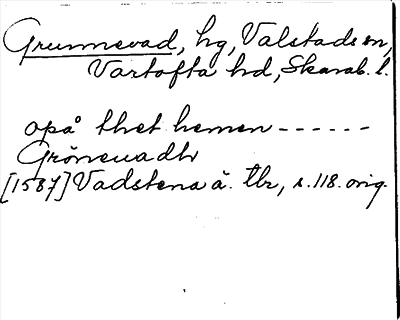 Grunnevad, hg, Valstads sn,
Vartofta hd, Skarab. l.
opå thet hemen ------
Gröneuadh
[1587] Vadstena ä. tbr, s. 118. orig.